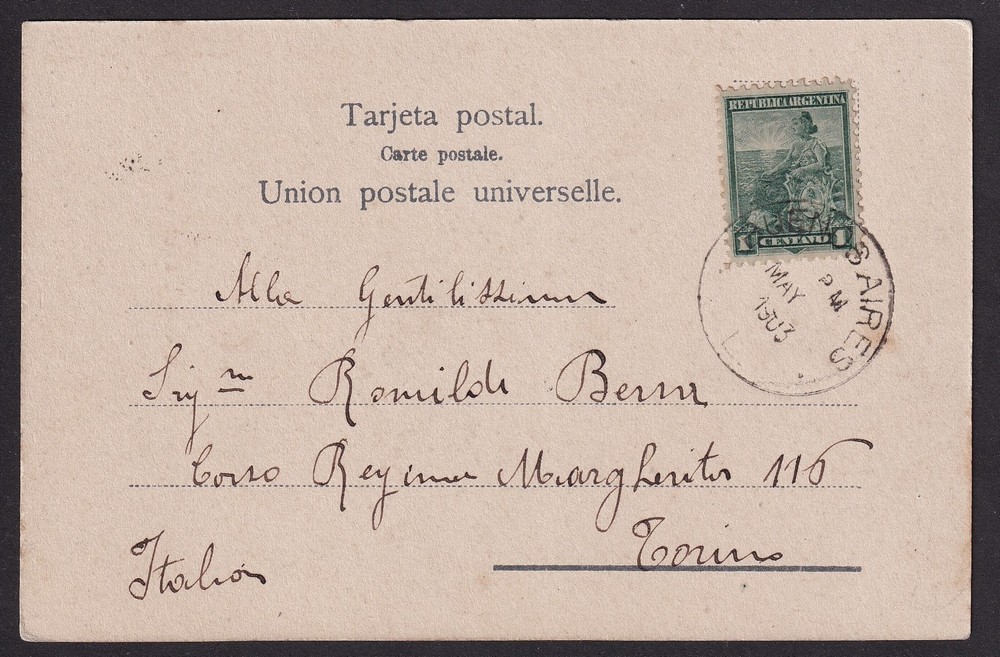 Tarjeta postal.
Carte postale.
Union postale universelle.
REPUBLICA ARGENTINA
1 CENTAVO 1
BUENOS AIRES
MAY PM
1903
Alla Gentilissima
Sig.na Romilda
Corso Regina Margherita 116
Torino
Italia